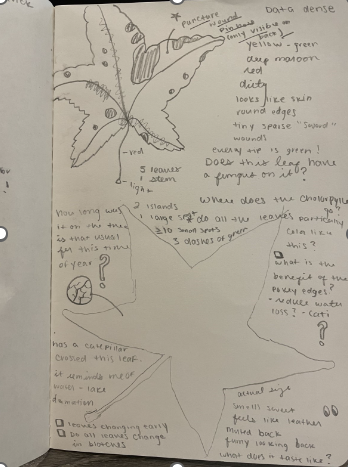 Data dense
puncture
wound
(only visible on
back)
yellow - green
deep maroon
red
dirty
looks like skin
round edges
tiny sparse "sword"
wounds
every tip is green!
Does this leaf have
a fungus on it?
red
5 leaves
1 stem
light
2 islands
1 large spot
10 small spots
3 dashes of green
Where does the
go?
do all the leaves partially
calm like
this?
how long was
it on the tree
is that usual
for this time
of year?
what is the
benefit of the
pokey edges?
- reduce water
loss? - cati
?
has a caterpillar
crossed this leaf.
it reminds me of
holes - lace
leaves changing early
Do all leaves change
in blotches
actual size
smells sweet
feels like leather
muted back
funny looking back
what does it taste like?